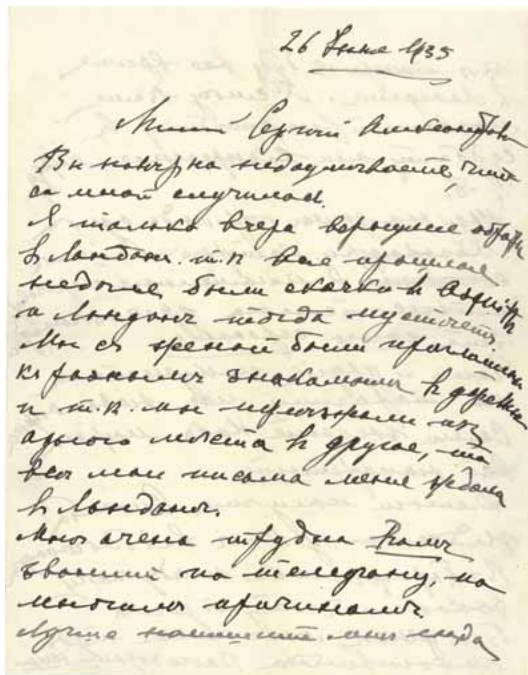 26 Июня 1935
Милый Сергей Александров
Вы наверна недоумываете, что
со мной случилось.
Я только вчера вернулся обратн
в Лондон. т.к. вся прошлая
недѣля были скачки в
и Лондонъ тогда пустуетъ
Мы съ женой были приглашены
къ разнымъ знакомымъ в деревн
и т.к. мы переѣзжали изъ
одного мѣста в другое, то
всѣ мои письма меня ждали
в Лондонѣ.
Мнѣ очень трудно Вамъ
звонить по телефону, по
многимъ причинамъ.
Лучше напишите мнѣ сюда